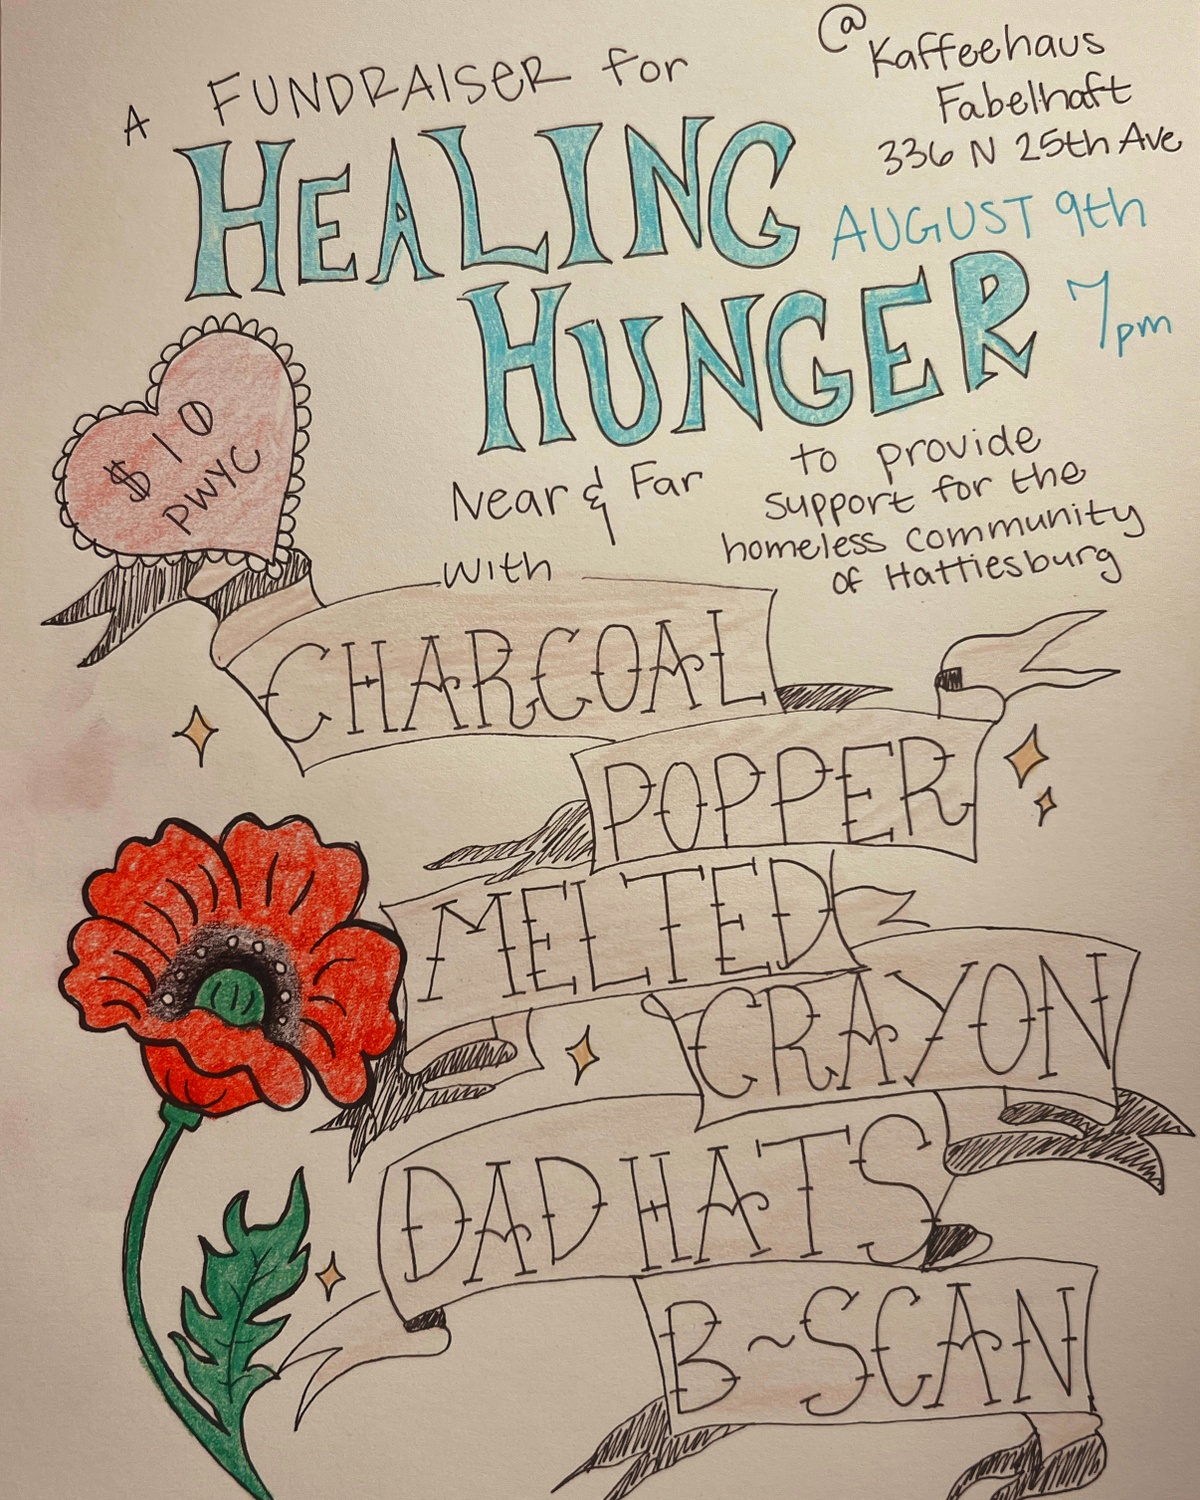 A FUNDRAISER for
HEALING
HUNGER
Near & Far
@
Kaffeehaus
Fabelhaft
336 N 25th Ave
AUGUST 9th
7pm
to provide
support for the
homeless community
of Hattiesburg
$10
PWYC
with
CHARCOAL
POPPER
MELTED
CRAYON
DAD HATS
B~SCAN